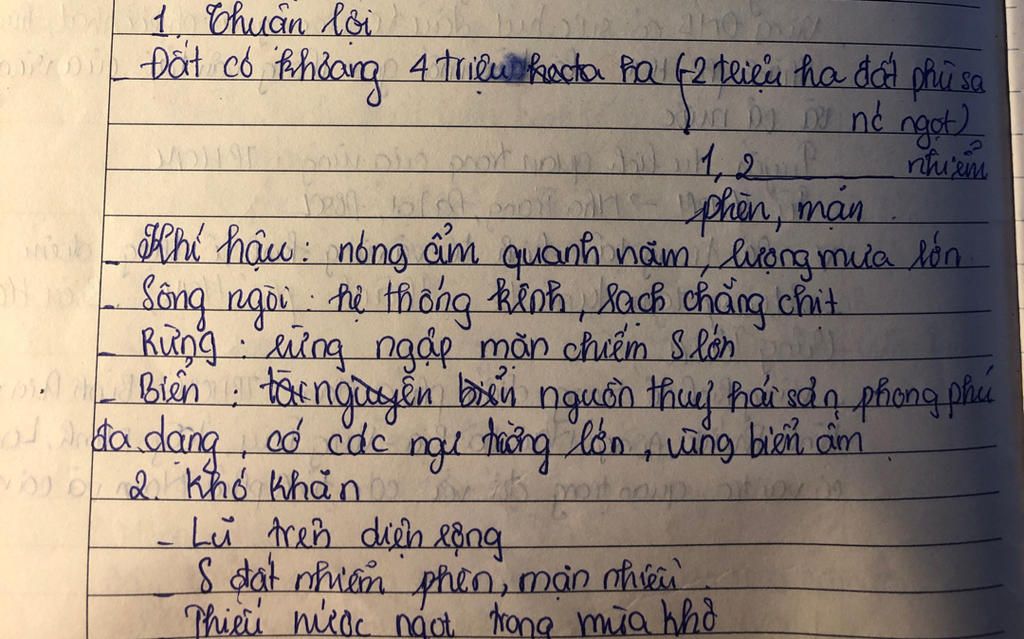 1. Thuấn lợi
- Đất có khoảng 4 triệu hecta ha (-2 triệu ha đất phù sa
nc ngọt)
1,2 ______ nhiễm
phèn, mặn.
- Khí hậu: nóng ẩm quanh năm, lượng mưa lớn
- Sông ngòi: hệ thống kênh, rạch chằng chịt
- Rừng: rừng ngập mặn chiếm S lớn
- Biển: tài nguyên biển nguồn thuỷ hải sản phong phú
đa dạng, có các ngư trường lớn, vùng biển ấm
2. Khó khăn
- Lũ trên diện rộng
- S đất nhiễm phèn, mặn nhiều.
Thiếu nước ngọt trong mùa khô